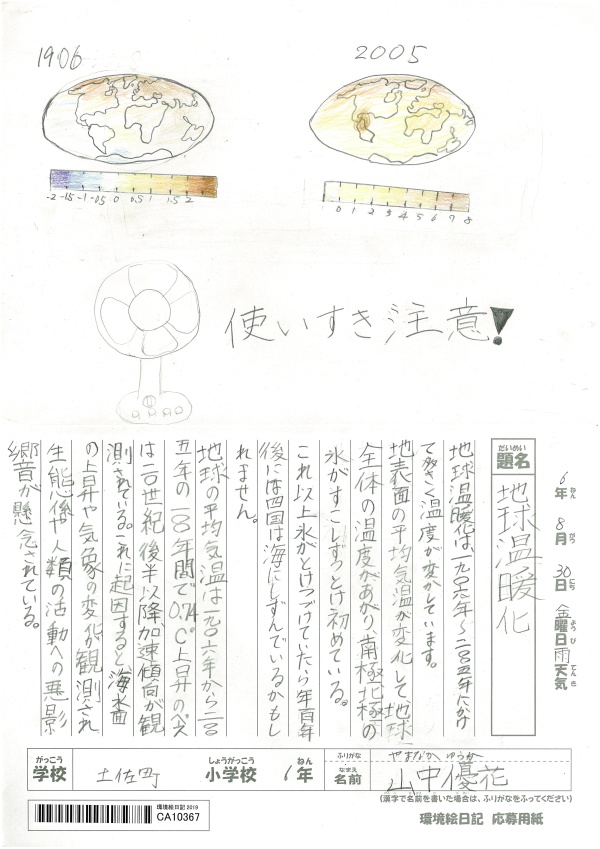 1906
2005
-2 -1.5 -1 -0.5 0 0.5 1 1.5 2
1 0 1 2 3 4 5 6 7 8
使いすぎ注意!
6年 8月 30日 金曜日 雨天気
ねん がつ にち ようび てんき
だいめい
題名
地球温暖化
地球温暖化は、一九〇六年～二〇〇五年にかけ
て多きく温度が変かしています。
地表面の平均気温が変化して地球
全体の温度があがり、南極北極の
氷がすこしずつとけ初めている。
これ以上氷がとけつづけていたら年百年
後には四国は海にしずんでいるかもし
れません。
地球の平均気温は一九〇六年から二〇〇
五年の一〇〇年間で0.74℃上昇のペース
は二〇世紀後半以降、加速傾向が観
測されている。これに起因すると海水面
の上昇や気象の変化が観測され
生態係や人類の活動への悪影
響が懸念されている。
がっこう
学校
土佐町
しょうがっこう
小学校
6年
ねん
ふりがな
やまなか ゆうか
なまえ
名前
山中優花
(漢字で名前を書いた場合は、ふりがなをふってください)
環境絵日記 2019
CA10367
環境絵日記 応募用紙